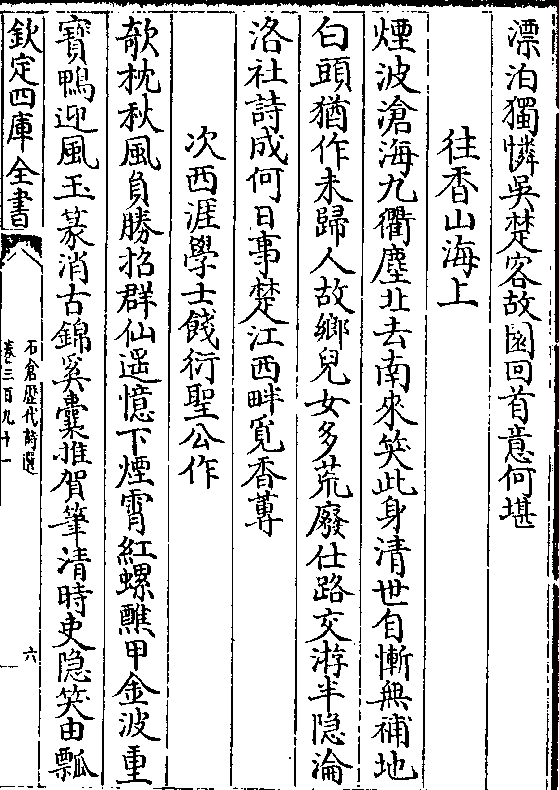 漂泊獨憐吳楚客故園回首意何堪
往香山海上
煙波滄海九衢塵北去南來笑此身清世自慚無補地
白頭猶作未歸人故鄉兒女多荒廢仕路交游半隐淪
洛社詩成何日事楚江西畔覓香蓴
次西涯學士餞衍聖公作
欹枕秋風負勝招群仙遥憶下煙霄紅螺醮甲金波重
寶鴨迎風玉篆消古錦奚囊推賀筆清時吏隐笑由瓢
欽定四庫全書
石倉歴代詩選
卷三百九十一
六